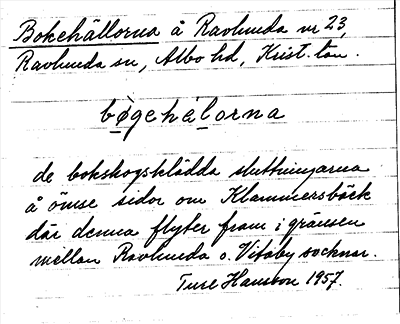 Bokehällorna å Ravlunda nr 23,
Ravlunda sn, Albo hd, Krist. län.
bø̀gehèlorna
de bokskogsklädda sluttningarna
å ömse sidor om Klammersbäck
där denna flyter fram i gränsen
mellan Ravlunda o. Vitaby socknar.
Ture Hansson 1957.